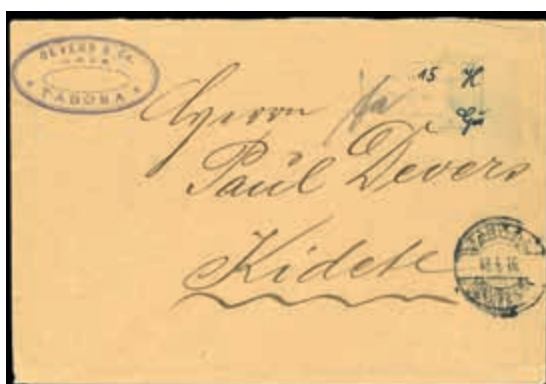 DEVERS & Co.
TABORA
15 H
Herrn
Paul Devers
Kidete
TABORA